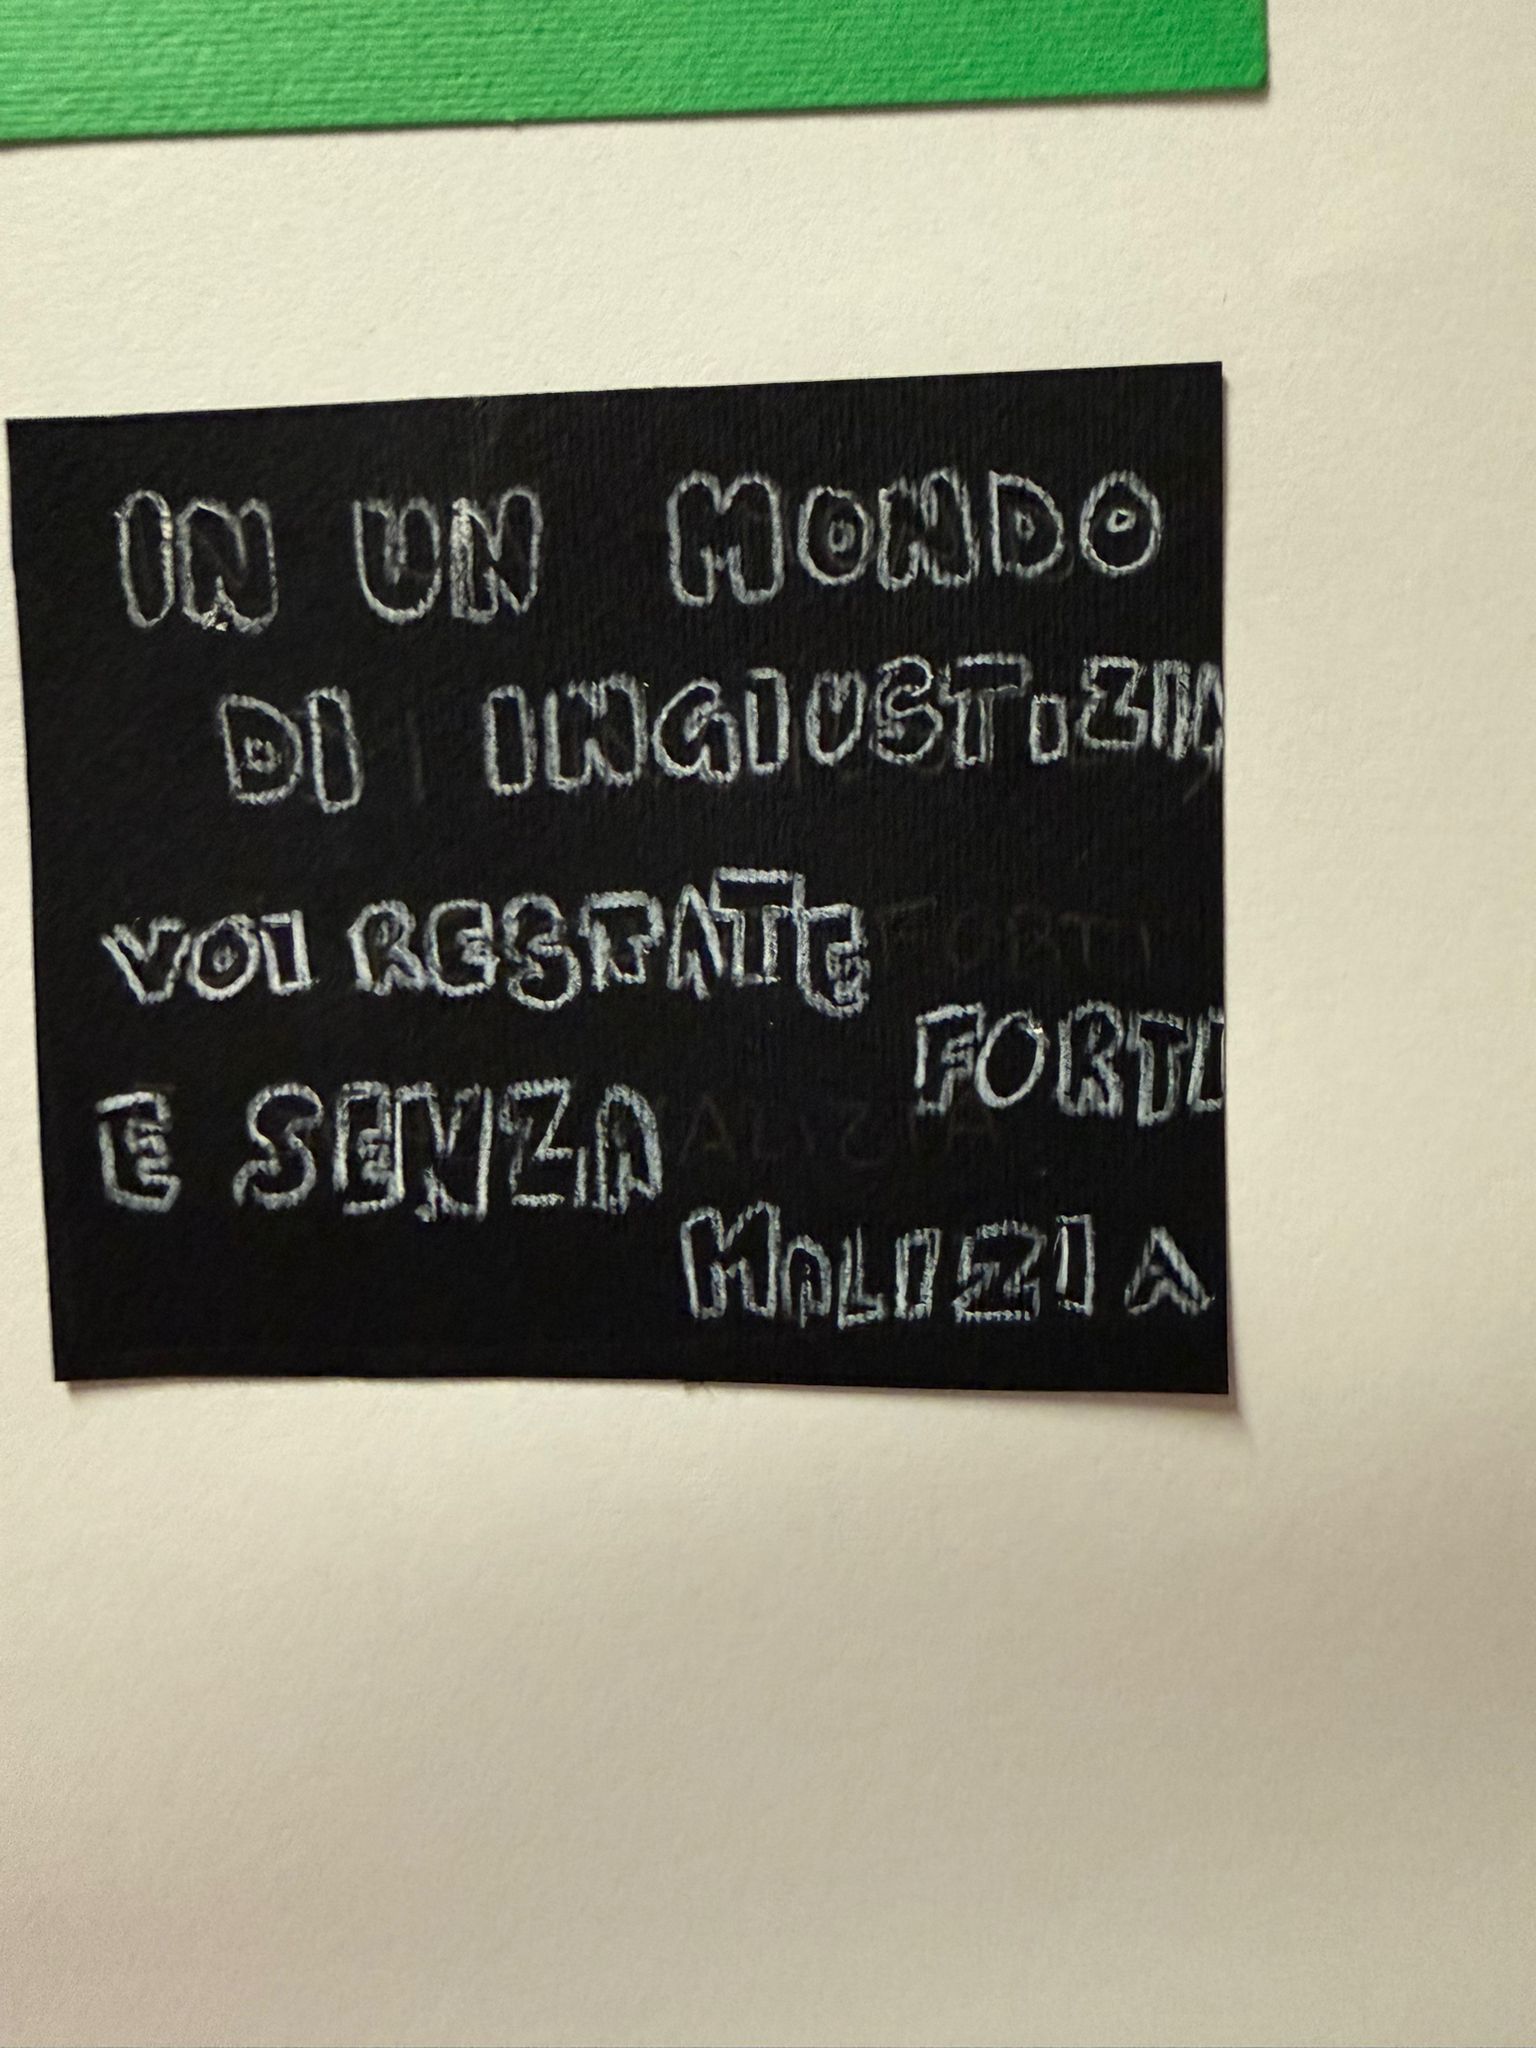 IN UN MONDO
DI INGIUSTIZIA
VOI RESTATE
FORTI
E SENZA
MALIZIA